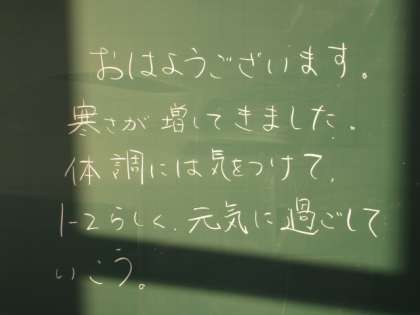 おはようございます。
寒さが増してきました。
体調には気をつけて、
1-2らしく、元気に過ごして
いこう。